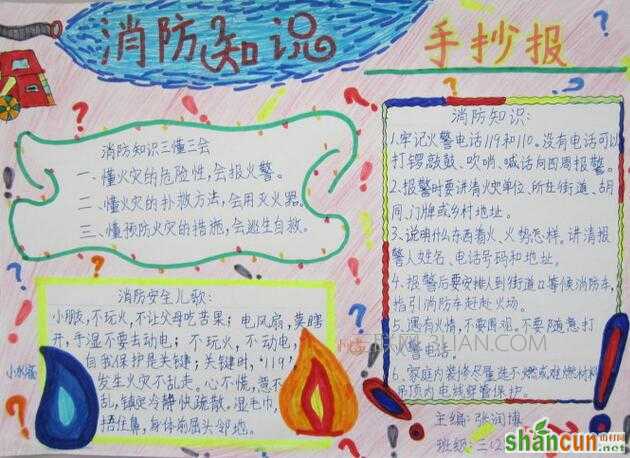 消防知识
手抄报
消防知识三懂三会
一、懂火灾的危险性,会报火警。
二、懂火灾的扑救方法,会用灭火器。
三、懂预防火灾的措施,会逃生自救。
消防安全儿歌:
小朋友,不玩火,不让父母吃苦果;电风扇,莫瞎
开,手湿不要去动电;不玩火,不动电,
自我保护是关键;关键时,"119",
发生火灾不乱走。心不慌,意不
乱,镇定冷静快疏散,湿毛巾,
捂住鼻,身体前属头邻地。
小水滴
消防知识:
1.牢记火警电话119和110。没有电话可以
打锣敲鼓、吹哨、喊话向四周报警。
2、报警时要讲清火灾单位、所在街道、胡
同、门牌或乡村地址。
3、说明什么东西着火、火势怎样。讲清报
警人姓名、电话号码和地址。
4、报警后要安排人到街道口等候消防车,
指引消防车赶赴火场。
5、遇有火情,不要围观。不要随意打
火警电话。
6、家庭内装修尽量选不燃或难燃材料,
吊顶内电线穿管保护。
主编:张润博
班级:三(2
shancun
.net